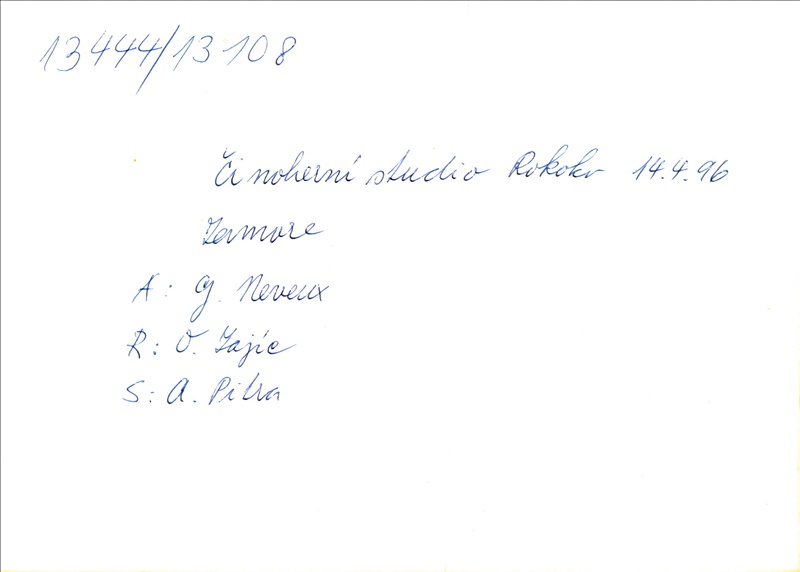 13444/13108
Činoherní studio Rokoko 14.4.96
Zamore
A: G. Neveux
R: O. Zajíc
S: A. Pitra